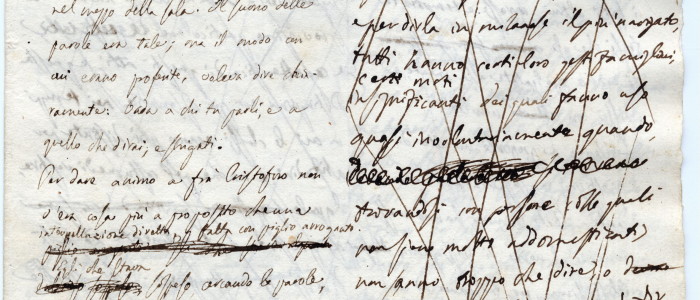 nel mezzo della sala. Il suono delle
parole era tale; ma il modo con
cui erano proferite, voleva dire chia-
ramente: bada a chi tu parli, e a
quello che dirai, e sbrigati.
Per dare animo a fra Cristoforo non
v'era cosa più a proposito che una
intepellazione diretta, e fatta con piglio arrogante.
Egli che stava
sospeso cercando le parole,
e per dirla in milanese il più
tutti hanno certi loro gesti famigliari,
certi moti
insignificanti dei quali fanno uso
quasi involontariamente quando,
trovandosi con persone colle quali
non sieno molto addomesticati,
non sanno troppo che dire, o